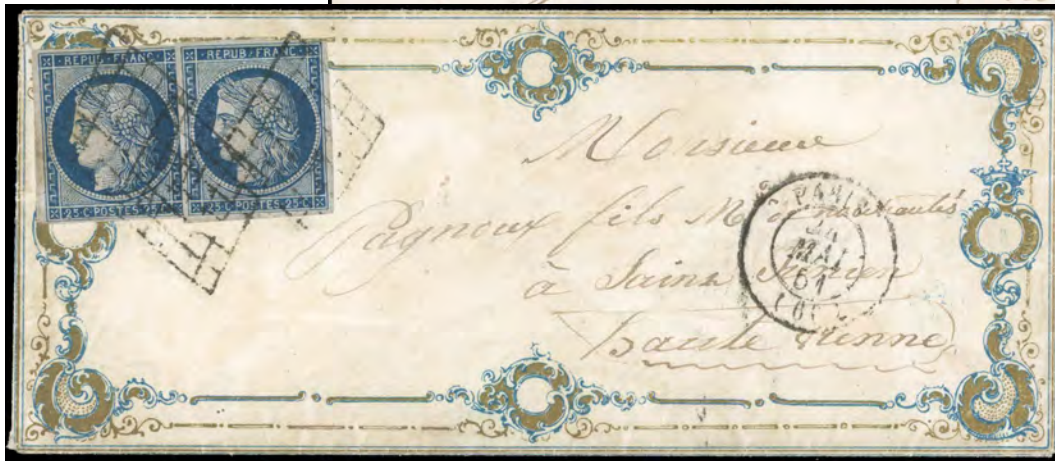 REPUB·FRANC· REPUB·FRANC·
25·C·POSTES·25·C· 25·C·POSTES·25·C·
Monsieur
Pagnoux fils Md de nouveautés
à Saint Junien
Haute Vienne
PARIS
MAI
51